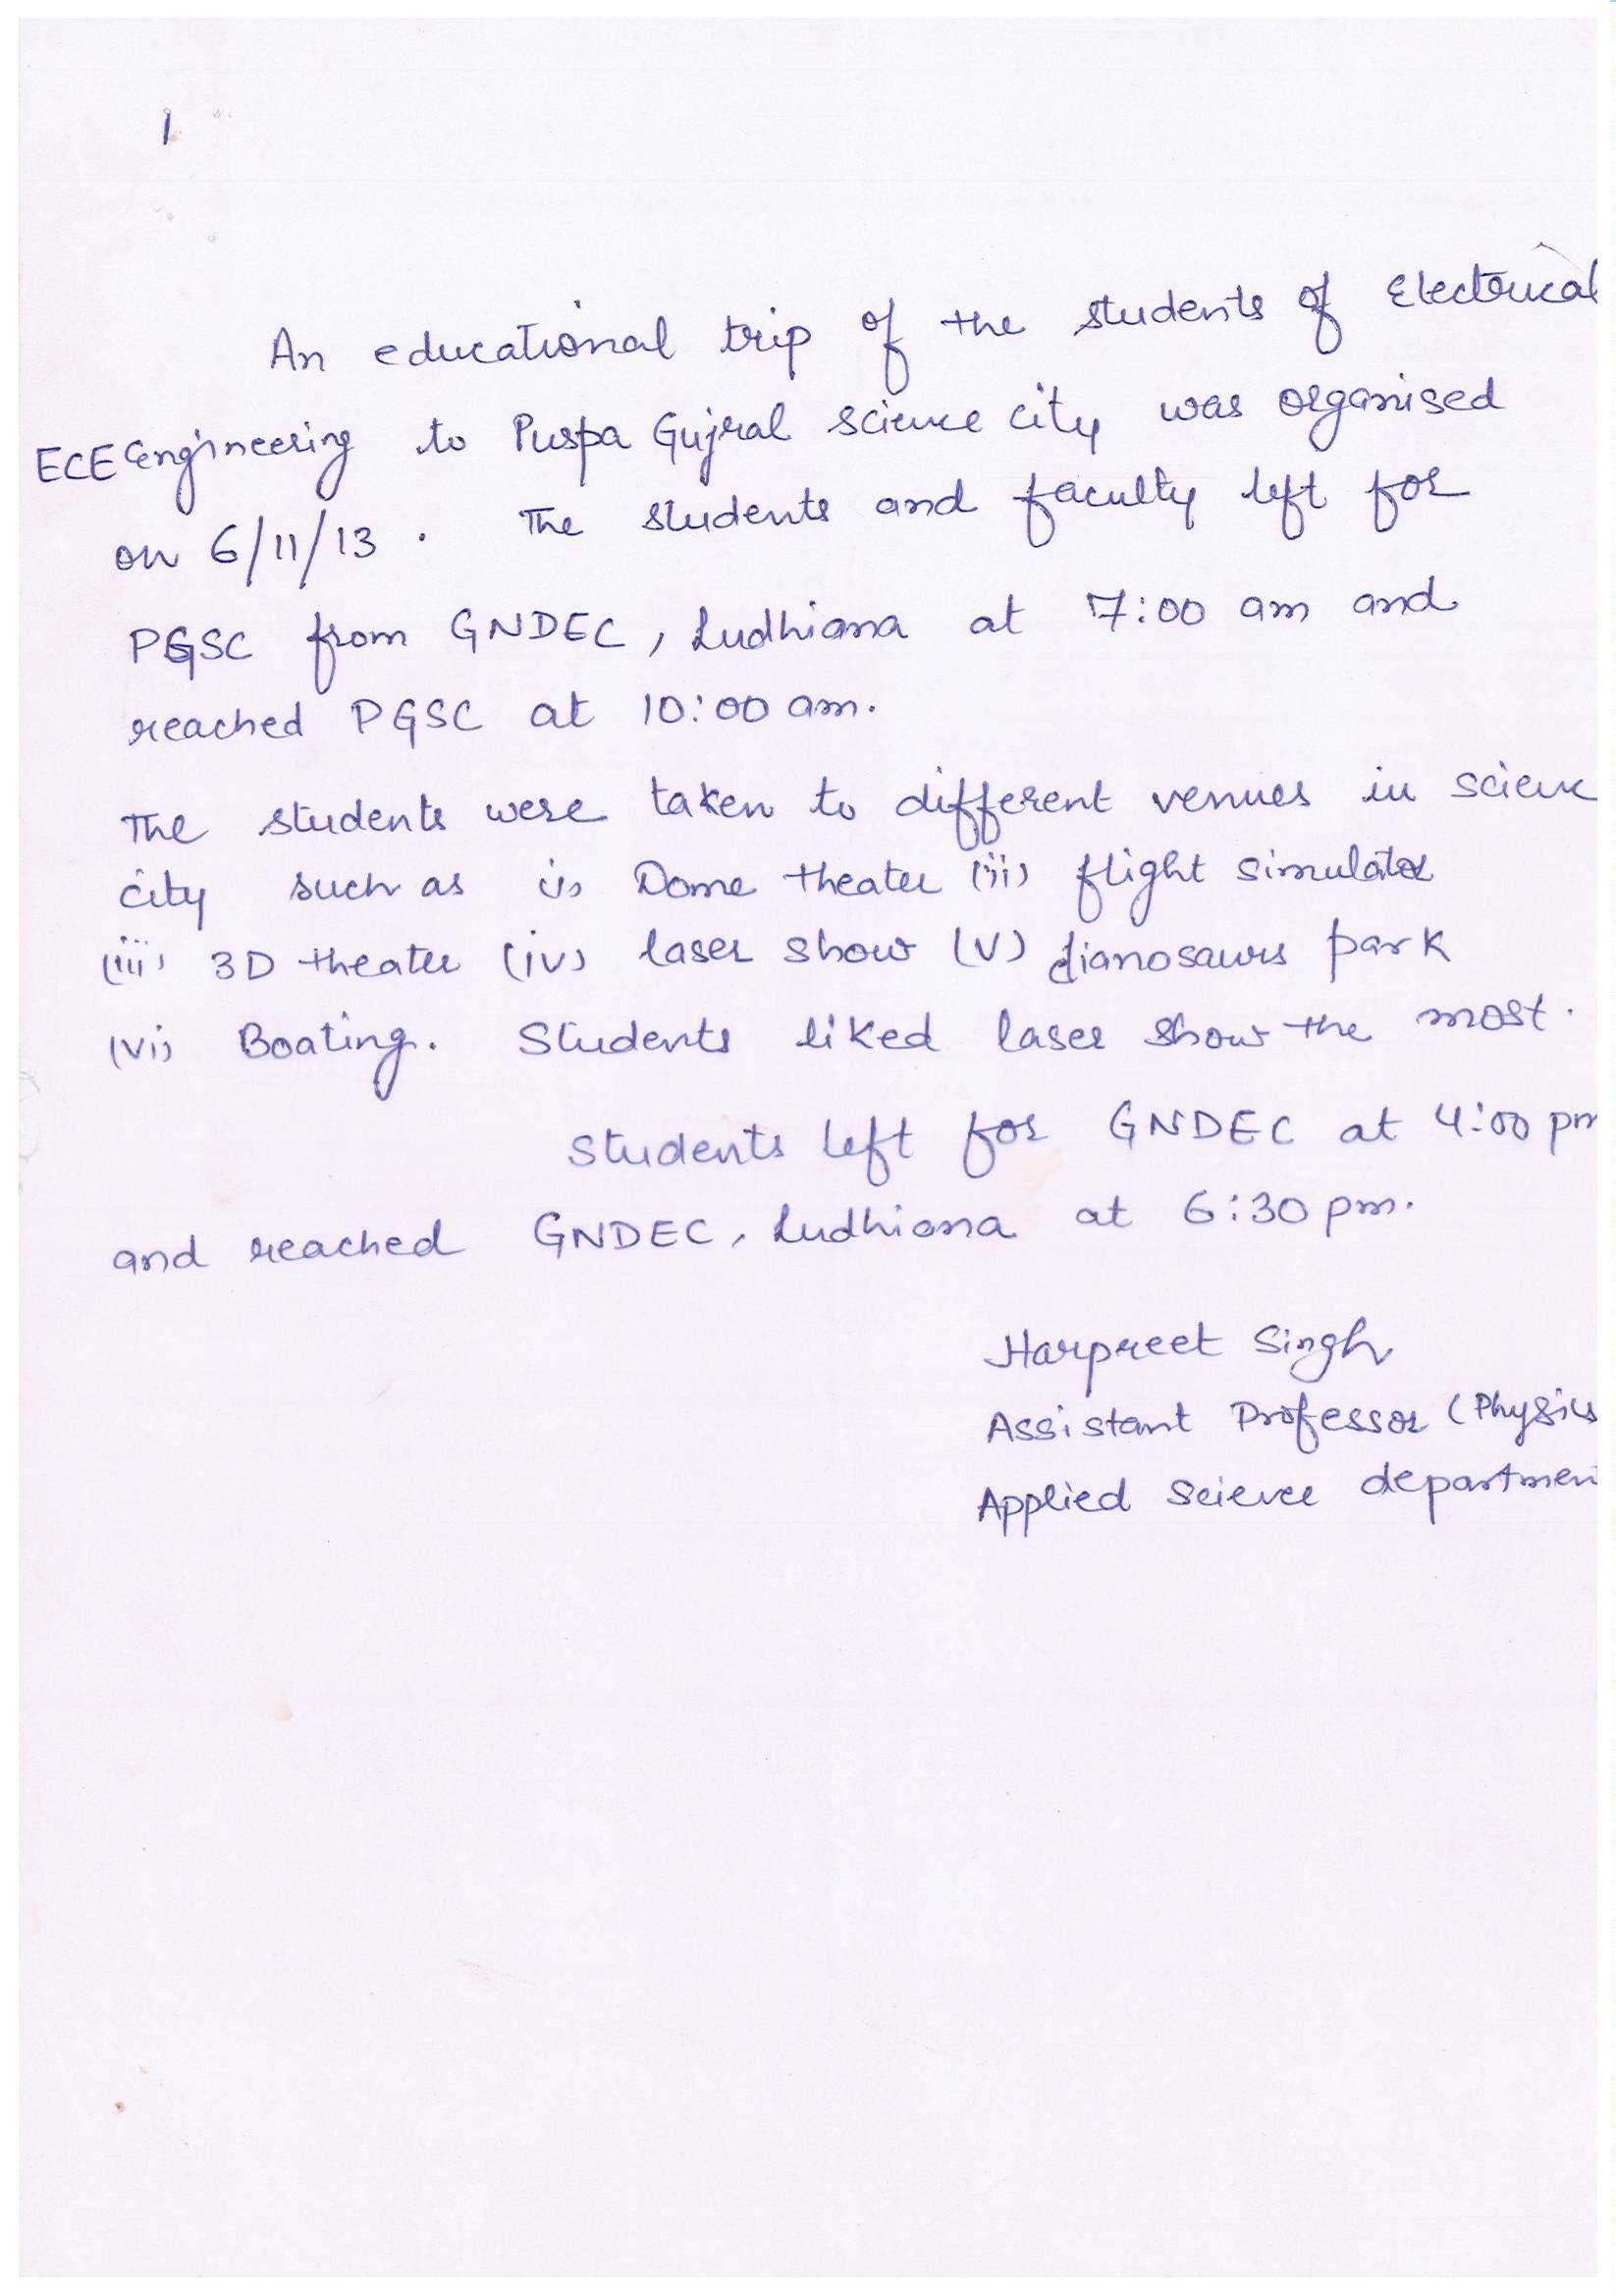 1
An educational trip of the students of Electrical
ECE Engineering to Puspa Gujral Science city was organised
on 6/11/13. The students and faculty left for
PGSC from GNDEC, Ludhiana at 7:00 am and
reached PGSC at 10:00 am.
The students were taken to different venues in scienc
city such as (i) Dome theater (ii) flight simulator
(iii) 3D theater (iv) laser show (v) dianosaurs park
(vi) Boating. Students liked laser show the most.
Students left for GNDEC at 4:00 pm
and reached GNDEC, Ludhiana at 6:30 pm.
Harpreet Singh
Assistant Professor (Physics
Applied Science departmen